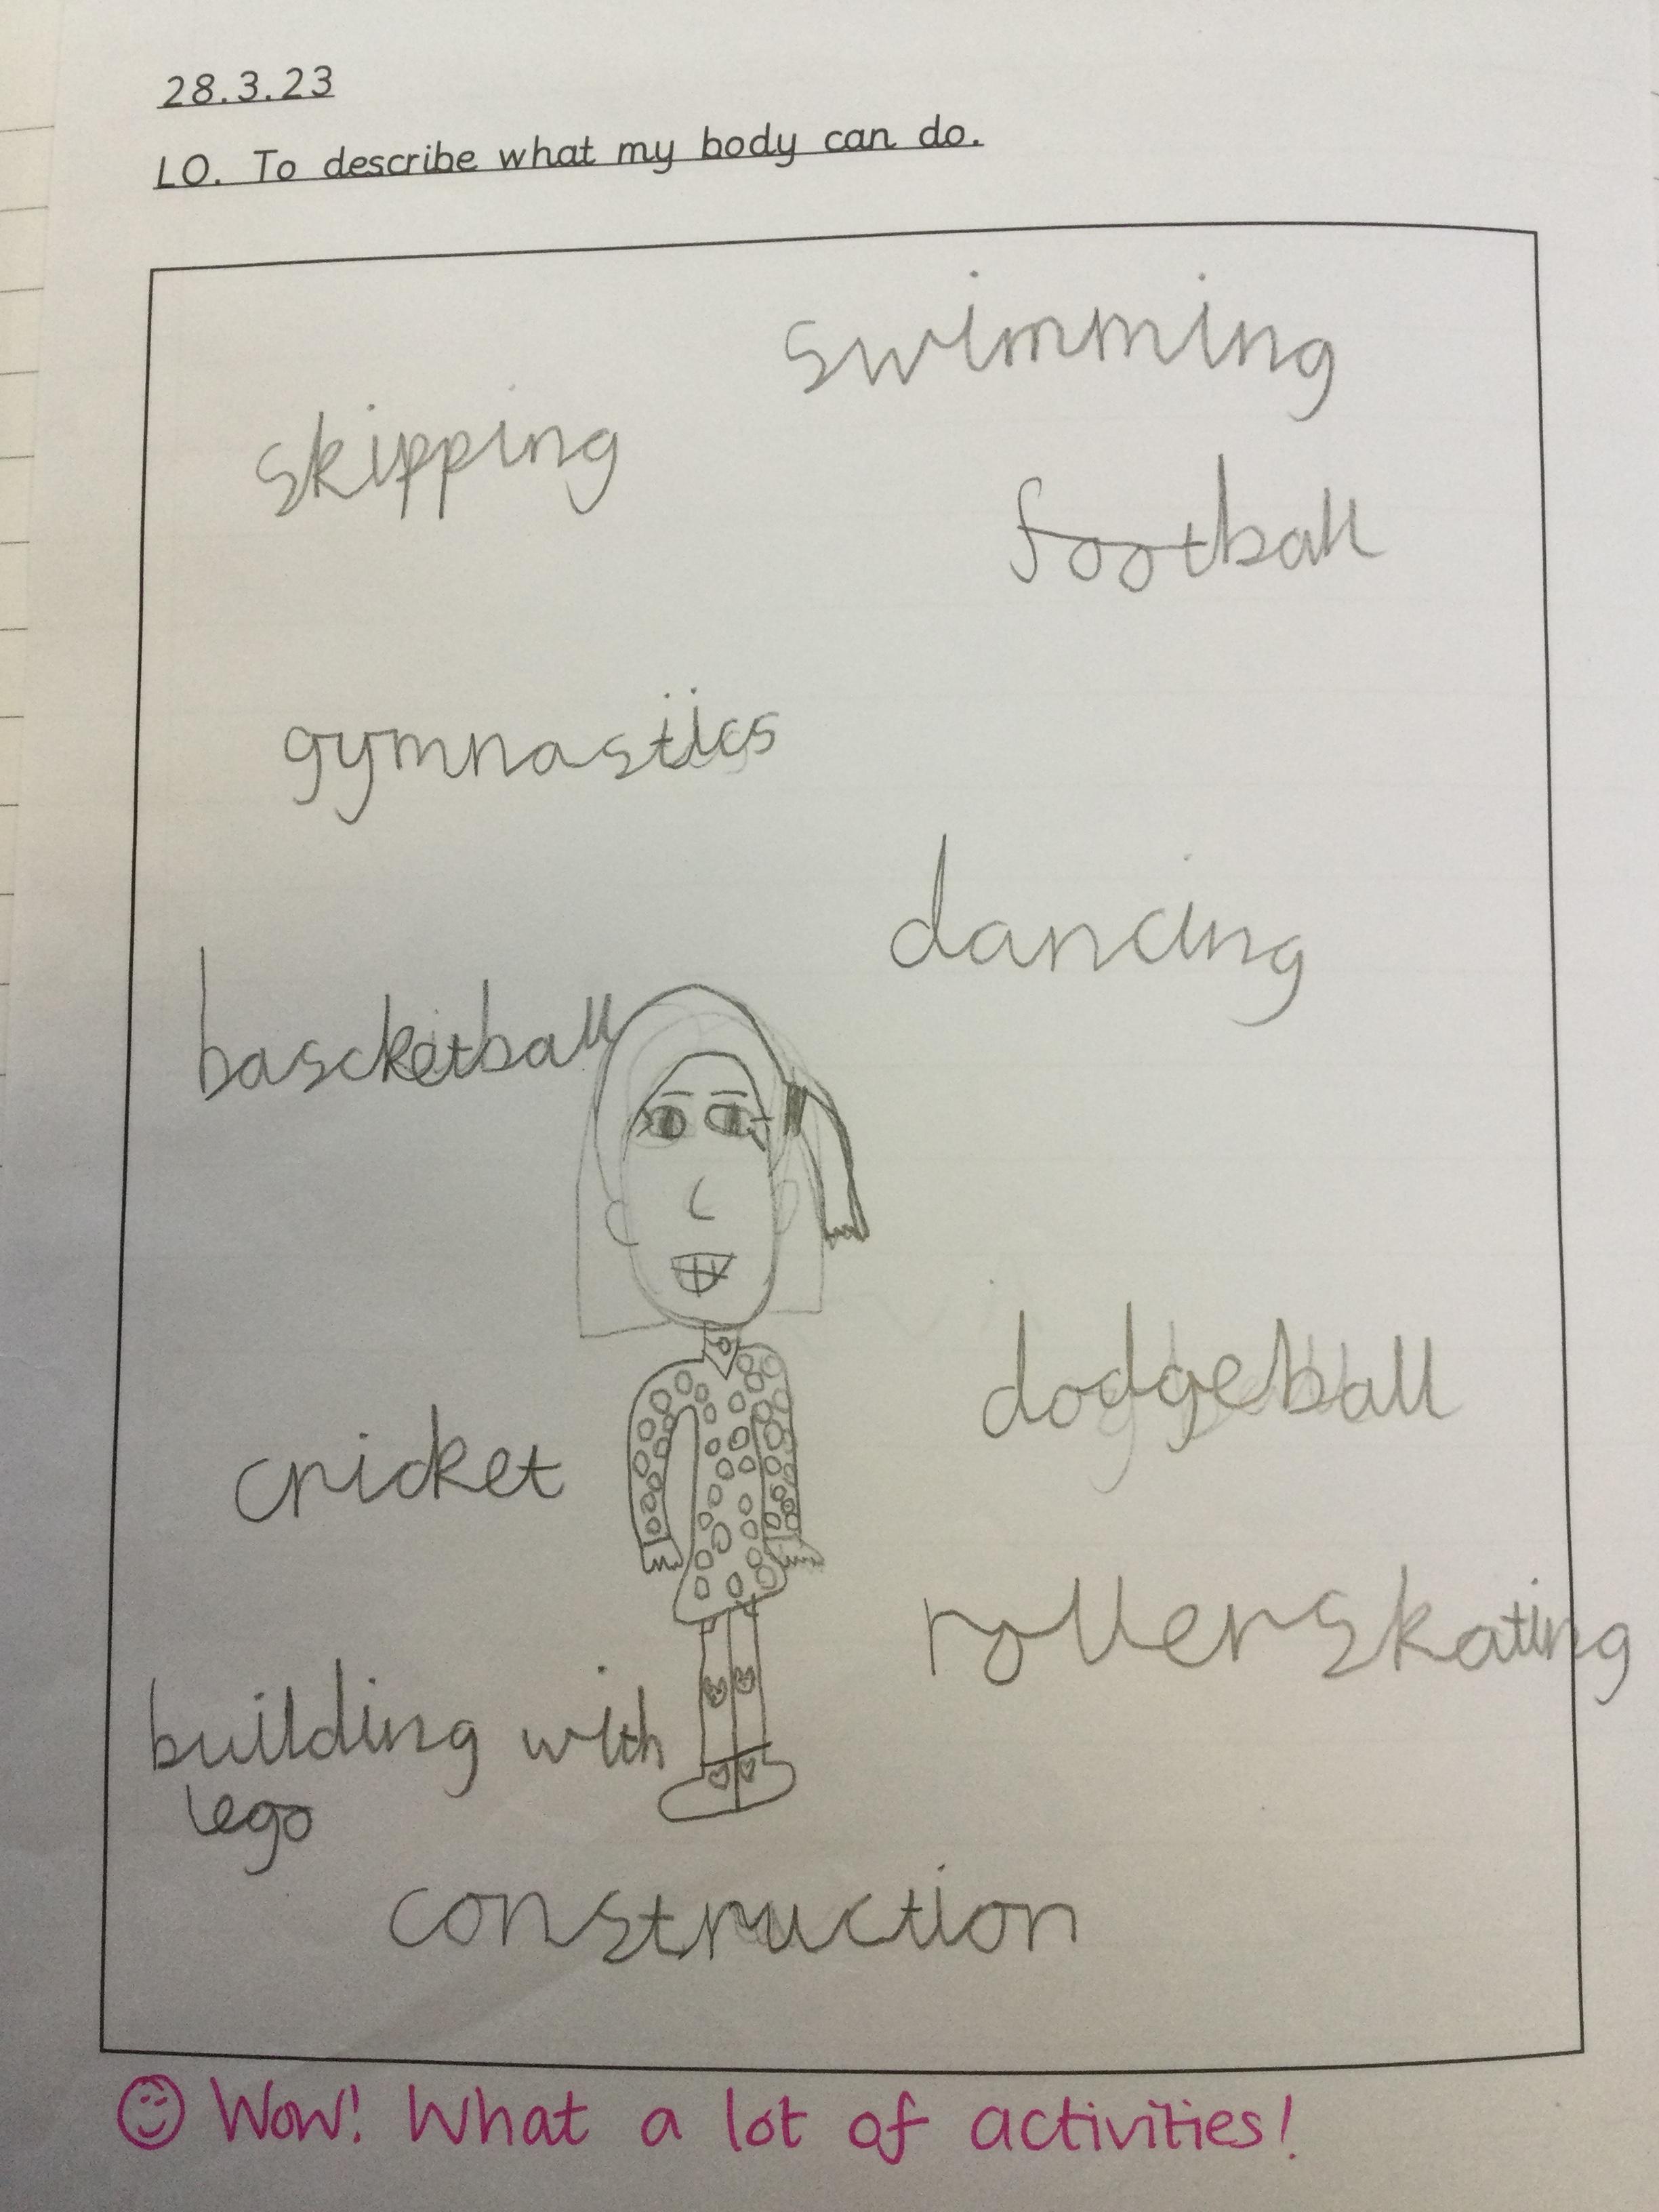 28.3.23
LO. To describe what my body can do.
swimming
skipping
football
gymnastics
dancing
bascketball
dodgeball
cricket
rollerskating
building with
lego
construction
Wow! What a lot of activities!